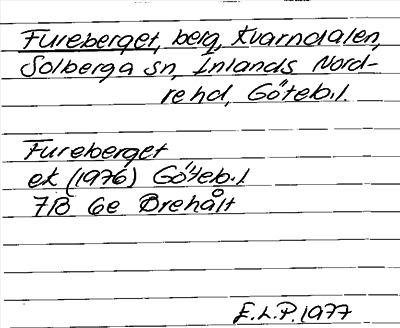 Fureberget, berg, Kvarndalen,
Solberga sn, Inlands Nord-
rehd, Göteb.l.
Fureberget
ek (1976) Göteb.l
7B 6e Brehålt
E.L.P. 1977